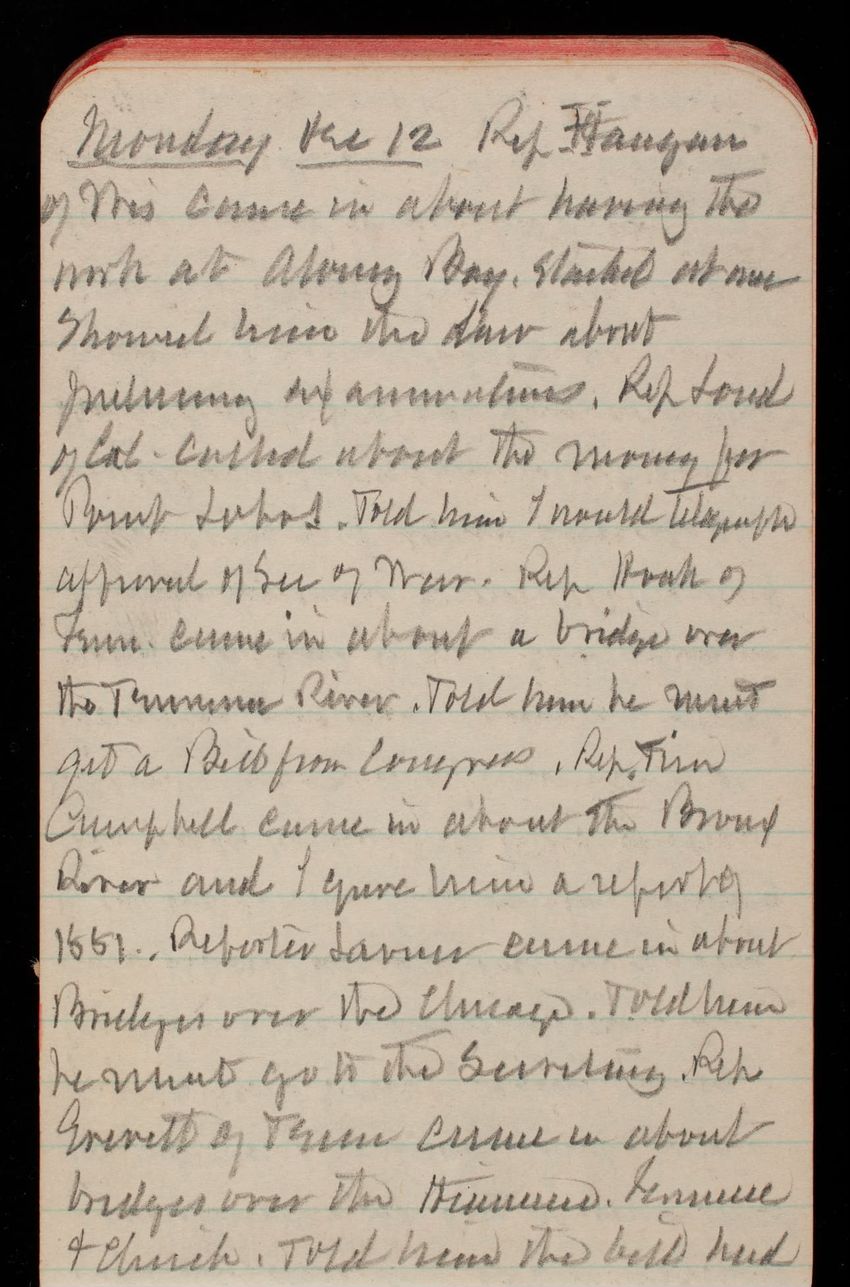 Monday Dec 12 Rep Haugan
of Wis came in about having the
work at Ahnapee Bay. Started at once
Showed him the law about
preliminary examinations. Rep Loud
of Cal. Called about the money for
Point Lobos. Told him I would telegraph
approval of Sec of War. Rep Houk of
Tenn. came in about a bridge over
the Tennessee River. Told him he must
get a Bill from Congress. Rep. Tim
Campbell came in about the Bronx
River and I gave him a report of
1881. Reporter came in about
Bridges over the Chicago. Told him
he must go to the Secretary. Rep
Everett of Tenn came in about
bridges over the
& Clinch. Told him the bill had